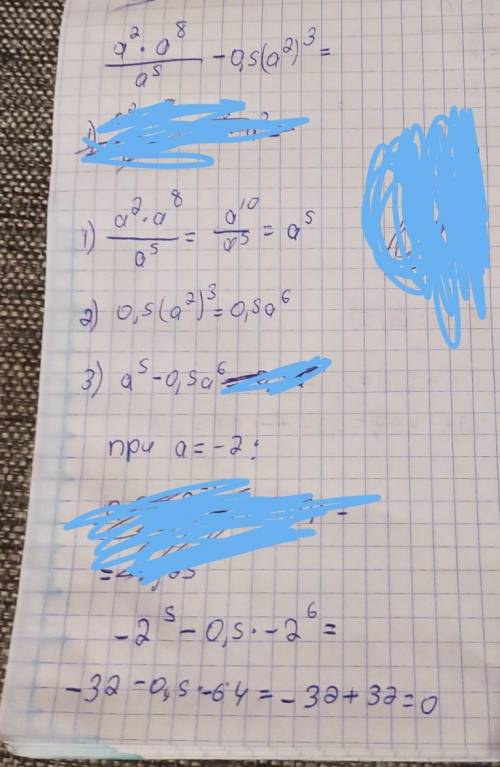 a² · a⁸ / a⁵ − 0,5(a²)³ =
1)
1) a² · a⁸ / a⁵ = a¹⁰ / a⁵ = a⁵
2) 0,5(a²)³ = 0,5a⁶
3) a⁵ − 0,5a⁶
при a = −2:
−2⁵ − 0,5 · −2⁶ =
−32 − 0,5 · −64 = −32 + 32 = 0